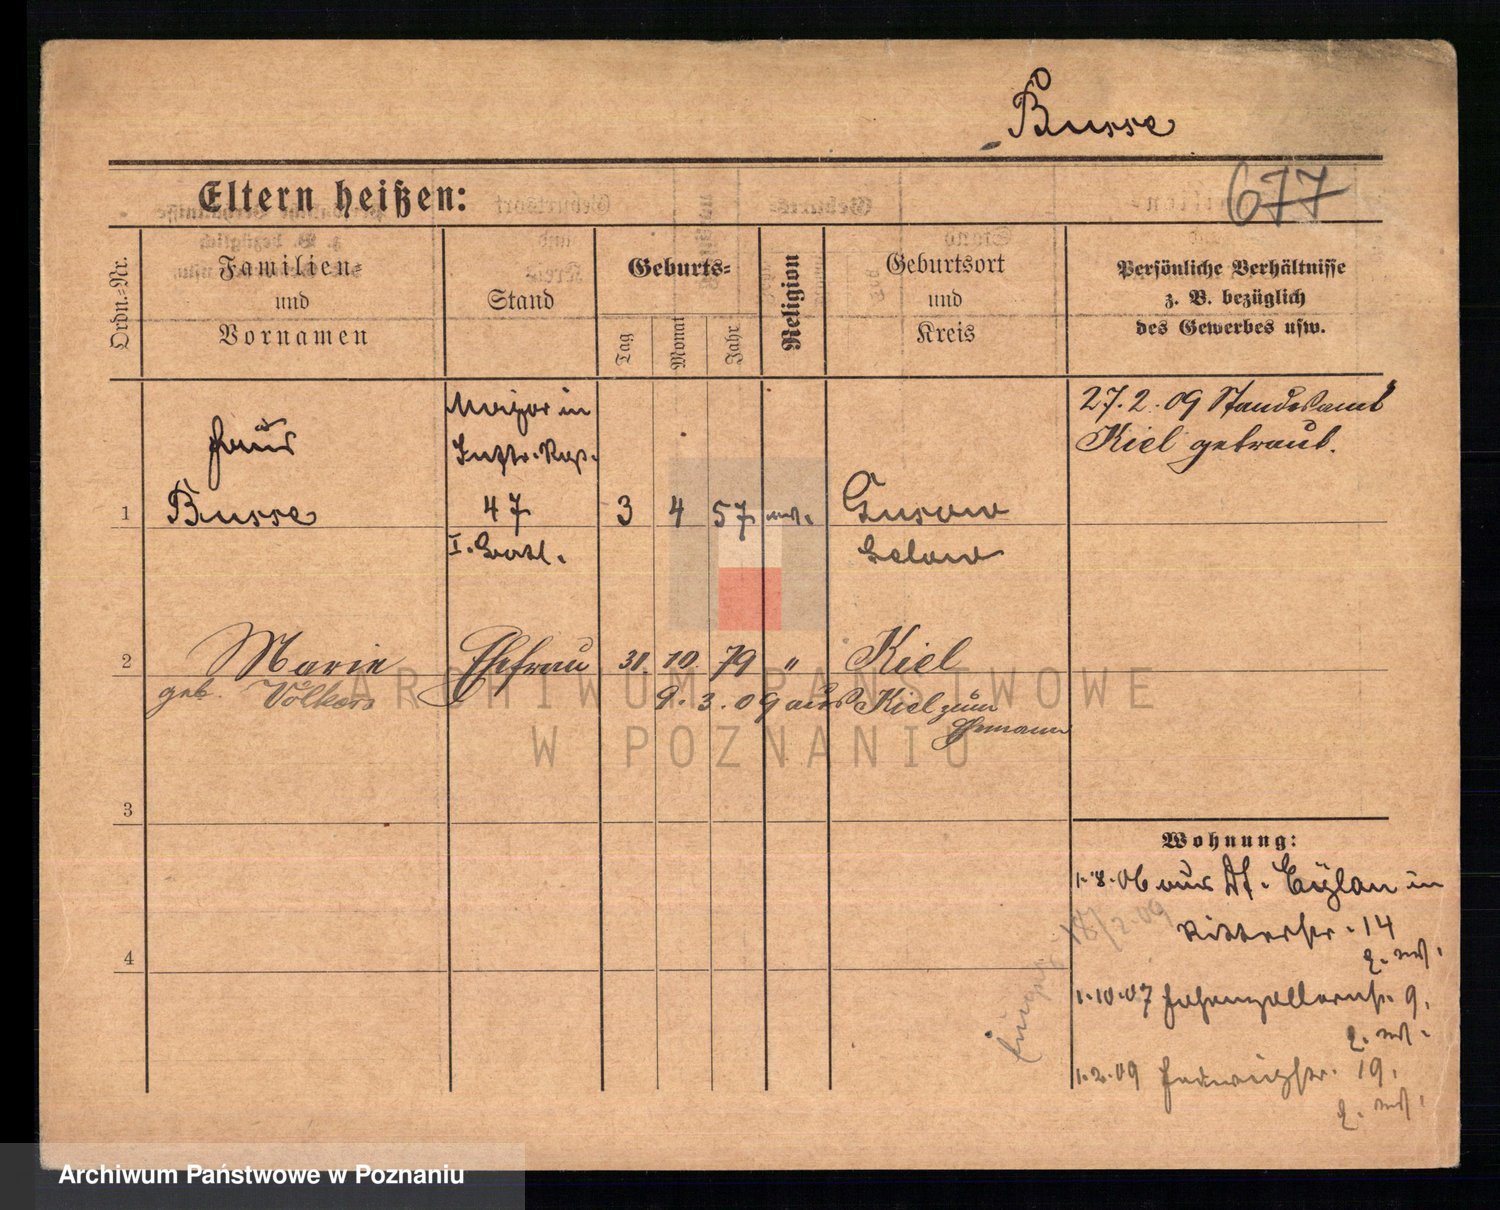 Busse
677
Eltern heißen:
Ordn.-Nr.
Familien-
und
Vornamen
Stand
Geburts-
Tag
Monat
Jahr
Religion
Geburtsort
und
Kreis
Persönliche Verhältnisse
z. B. bezüglich
des Gewerbes usw.
Major in
Inftr. Reg.
1
Busse
47
3
4
57
ev.
Gusow
27.2.09 Standesamt
Kiel getraut.
2
Marie
Ehefrau
31.
10.
79
"
Kiel
geb. Völkers
9.3.09 aus Kiel zum
Ehemann
3
4
Wohnung:
1.8.06 aus Dt. Eylau in
Ritterstr. 14
1.10.07 Hohenzollernstr. 9.
1.2.09 Hedwigstr. 19.
18/2.09
ARCHIWUM PAŃSTWOWE
W POZNANIU
Archiwum Państwowe w Poznaniu